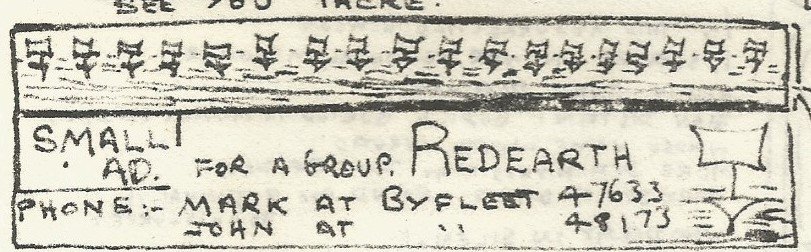 SEE YOU THERE.
SMALL AD. FOR A GROUP. REDEARTH
PHONE:- MARK AT BYFLEET 47633
JOHN AT " 48173